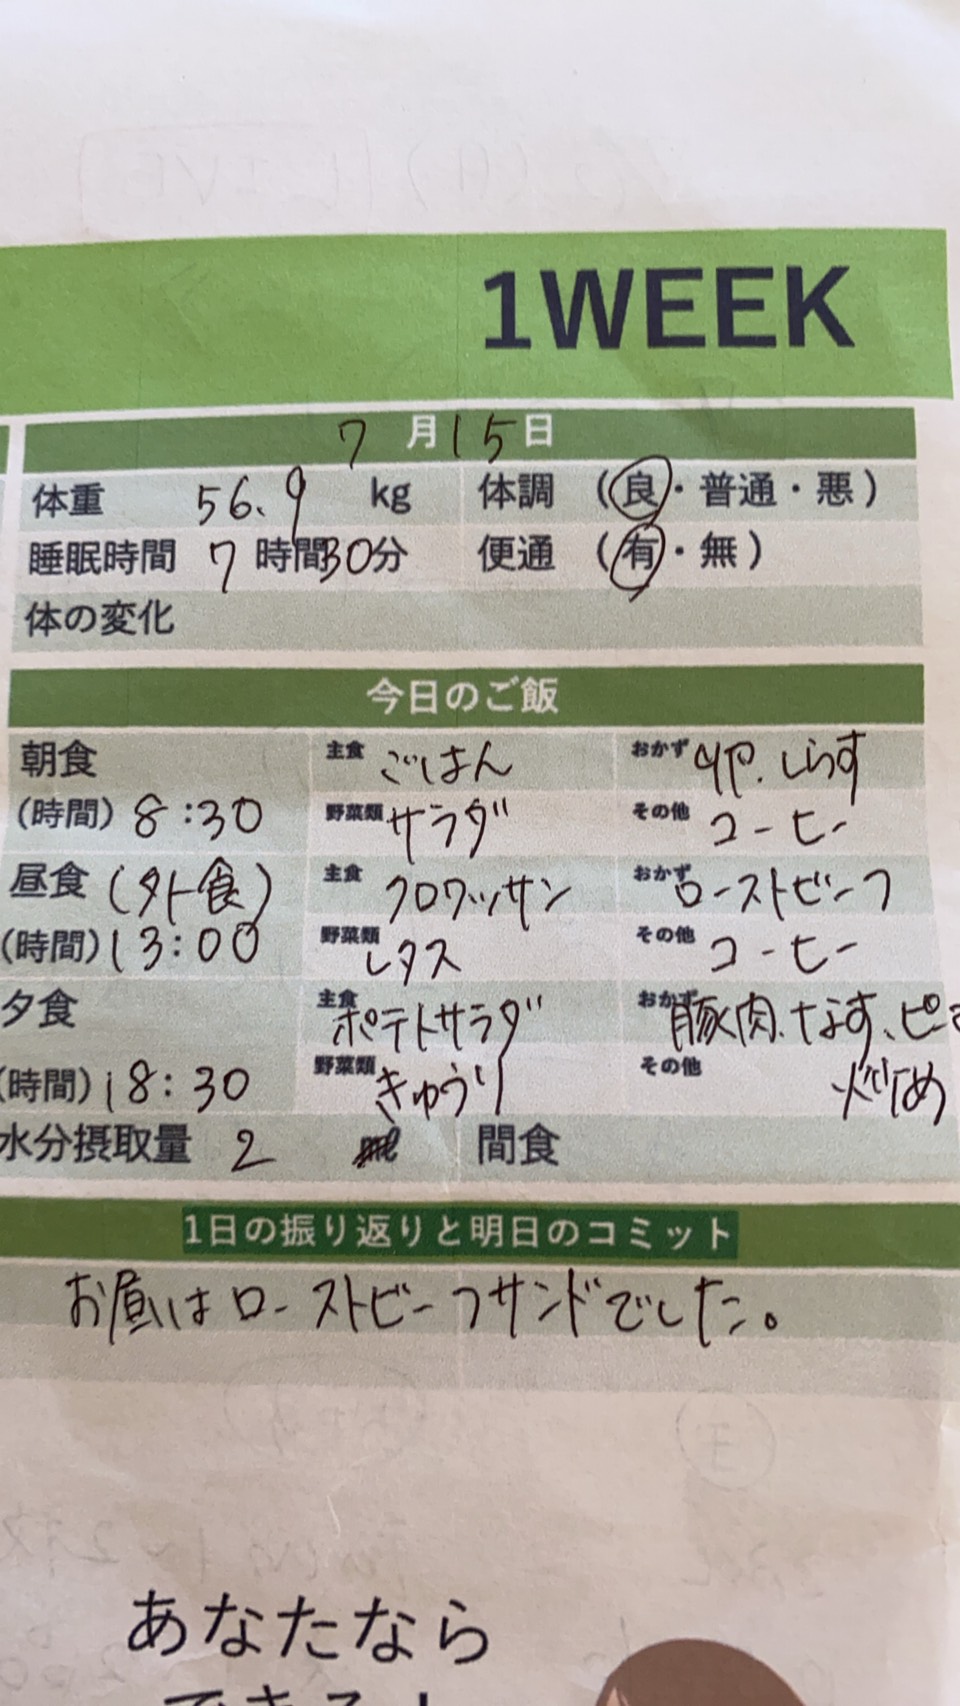 1WEEK
7月15日
体重 56.9 kg 体調 (良・普通・悪)
睡眠時間 7時間30分 便通 (有・無)
体の変化
今日のご飯
朝食 主食 ごはん おかず 卵、しらす
(時間) 8:30 野菜類 サラダ その他 コーヒー
昼食 (外食) 主食 クロワッサン おかず ローストビーフ
(時間) 13:00 野菜類 レタス その他 コーヒー
夕食 主食 ポテトサラダ おかず 豚肉、なす、ピー
(時間) 18:30 野菜類 きゅうり その他 炒め
水分摂取量 2 ℓ 間食
1日の振り返りと明日のコミット
お昼はローストビーフサンドでした。
あなたなら